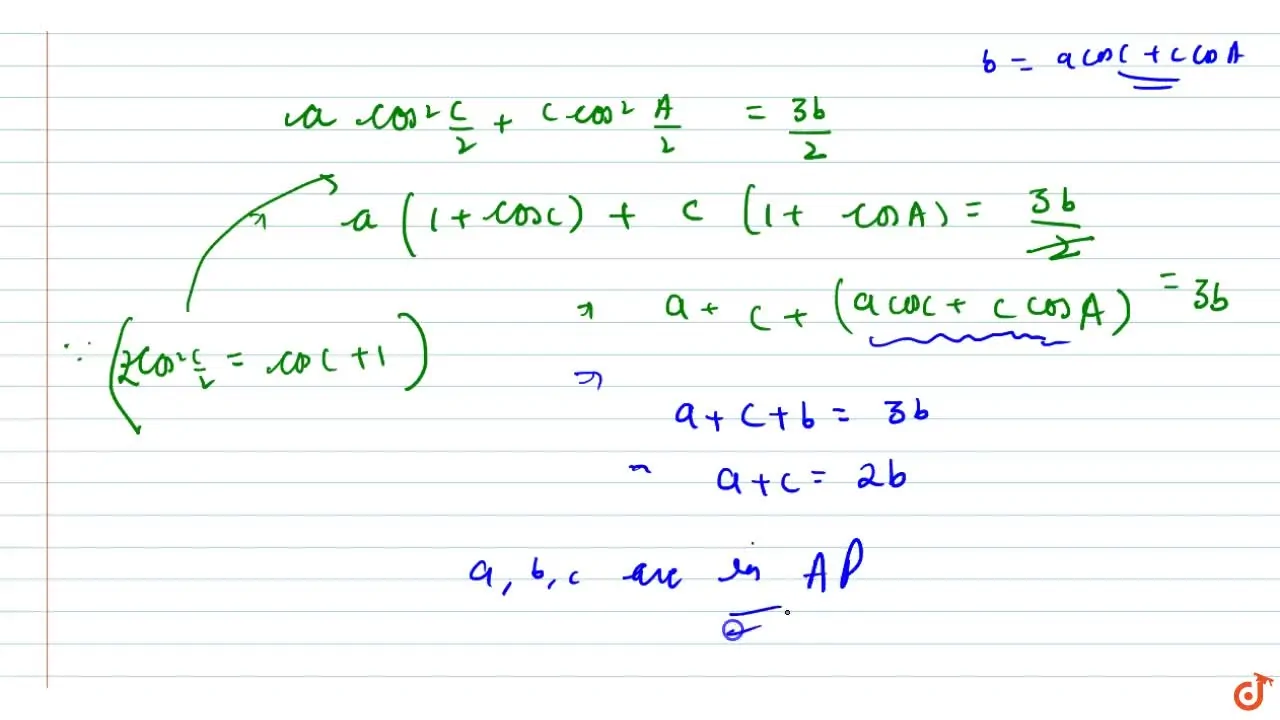 b = a cosC + c cosA
a cos² C/2 + c cos² A/2 = 3b/2
a (1 + cosC) + c (1 + cosA) = 3b/2
⇒ a + c + (a cosC + c cosA) = 3b
∵ (2cos² C/2 = cosC + 1)
⇒
a + c + b = 3b
⇒ a + c = 2b
a, b, c are in AP